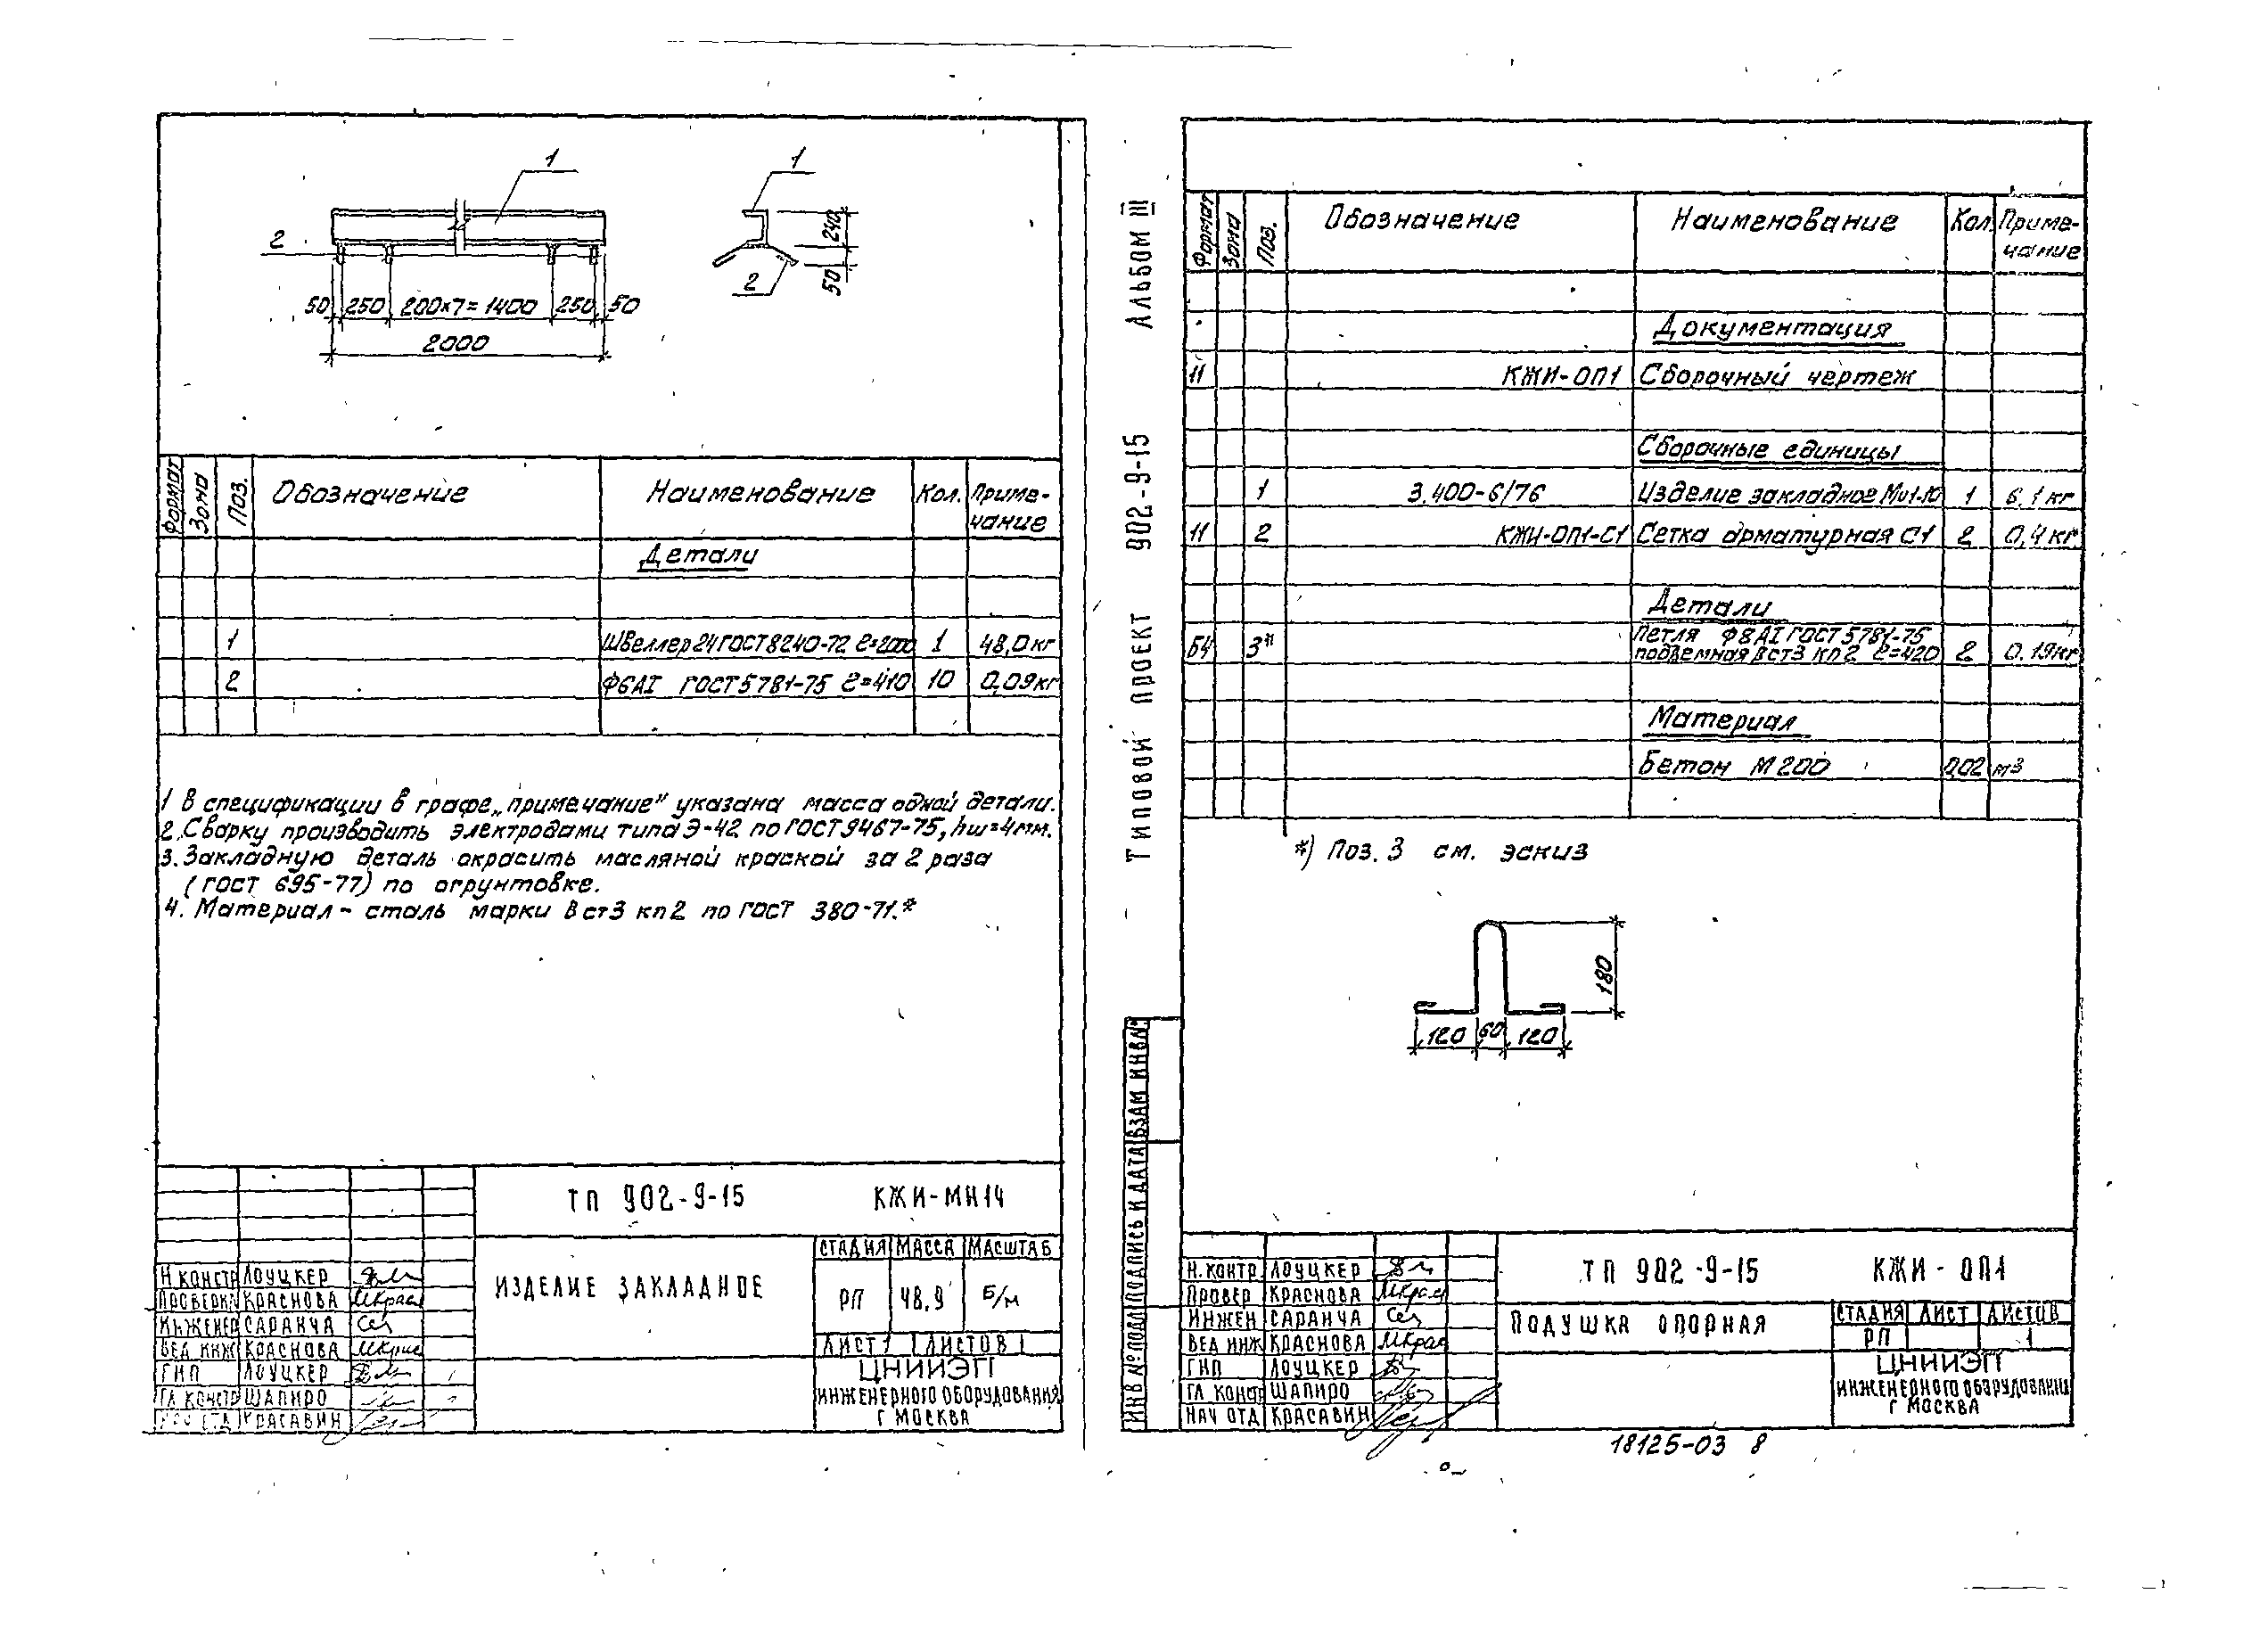 1
1
2
240
50
2
50 250 200×7=1400 250 50
2000
Формат Зона Поз. Обозначение Наименование Кол. Приме-
чание
Детали
1 Швеллер 24 ГОСТ 8240-72 ℓ=2000 1 48,0 кг
2 Ф6АI ГОСТ 5781-75 ℓ=410 10 0,09 кг
1 В спецификации в графе „примечание" указана масса одной детали.
2. Сварку производить электродами типа Э-42 по ГОСТ 9467-75, hш=4мм.
3. Закладную деталь окрасить масляной краской за 2 раза
(ГОСТ 695-77) по огрунтовке.
4. Материал - сталь марки Вст3 кп2 по ГОСТ 380-71.*
ТП 902-9-15 КЖИ-МН14
ИЗДЕЛИЕ ЗАКЛАДНОЕ
СТАДИЯ МАССА МАСШТАБ
РП 48,9 Б/М
ЛИСТ 1 ЛИСТОВ 1
ЦНИИЭП
ИНЖЕНЕРНОГО ОБОРУДОВАНИЯ
Г МОСКВА
Н.КОНСТР ЛОУЦКЕР
ПРОВЕРИЛ КРАСНОВА
ИНЖЕНЕР САРАНЧА
ВЕД ИНЖ КРАСНОВА
ГИП ЛОУЦКЕР
ГЛ КОНСТР ШАПИРО
КРАСАВИН
АЛЬБОМ III
ТИПОВОЙ ПРОЕКТ 902-9-15
ИНВ № ПОДЛ ПОДПИСЬ И ДАТА ВЗАМ ИНВ №
Формат Зона Поз. Обозначение Наименование Кол. Приме-
чание
Документация
11 КЖИ-ОП1 Сборочный чертеж
Сборочные единицы
1 3.400-6/76 Изделие закладное Мн1-10 1 6,1 кг
11 2 КЖИ-ОП1-С1 Сетка арматурная С1 2 0,4 кг
Детали
Б4 3* Петля Ф8АI ГОСТ 5781-75
подъемная Вст3 кп2 ℓ=420 2 0.19кг
Материал
Бетон М 200 0,02 м3
*) Поз. 3 см. эскиз
180
120 60 120
ТП 902-9-15 КЖИ-ОП1
ПОДУШКА ОПОРНАЯ
СТАДИЯ ЛИСТ ЛИСТОВ
РП 1
ЦНИИЭП
ИНЖЕНЕРНОГО ОБОРУДОВАНИЯ
Г МОСКВА
Н.КОНТР ЛОУЦКЕР
ПРОВЕР КРАСНОВА
ИНЖЕН САРАНЧА
ВЕД ИНЖ КРАСНОВА
ГИП ЛОУЦКЕР
ГЛ КОНСТР ШАПИРО
НАЧ ОТД КРАСАВИН
18125-03 8